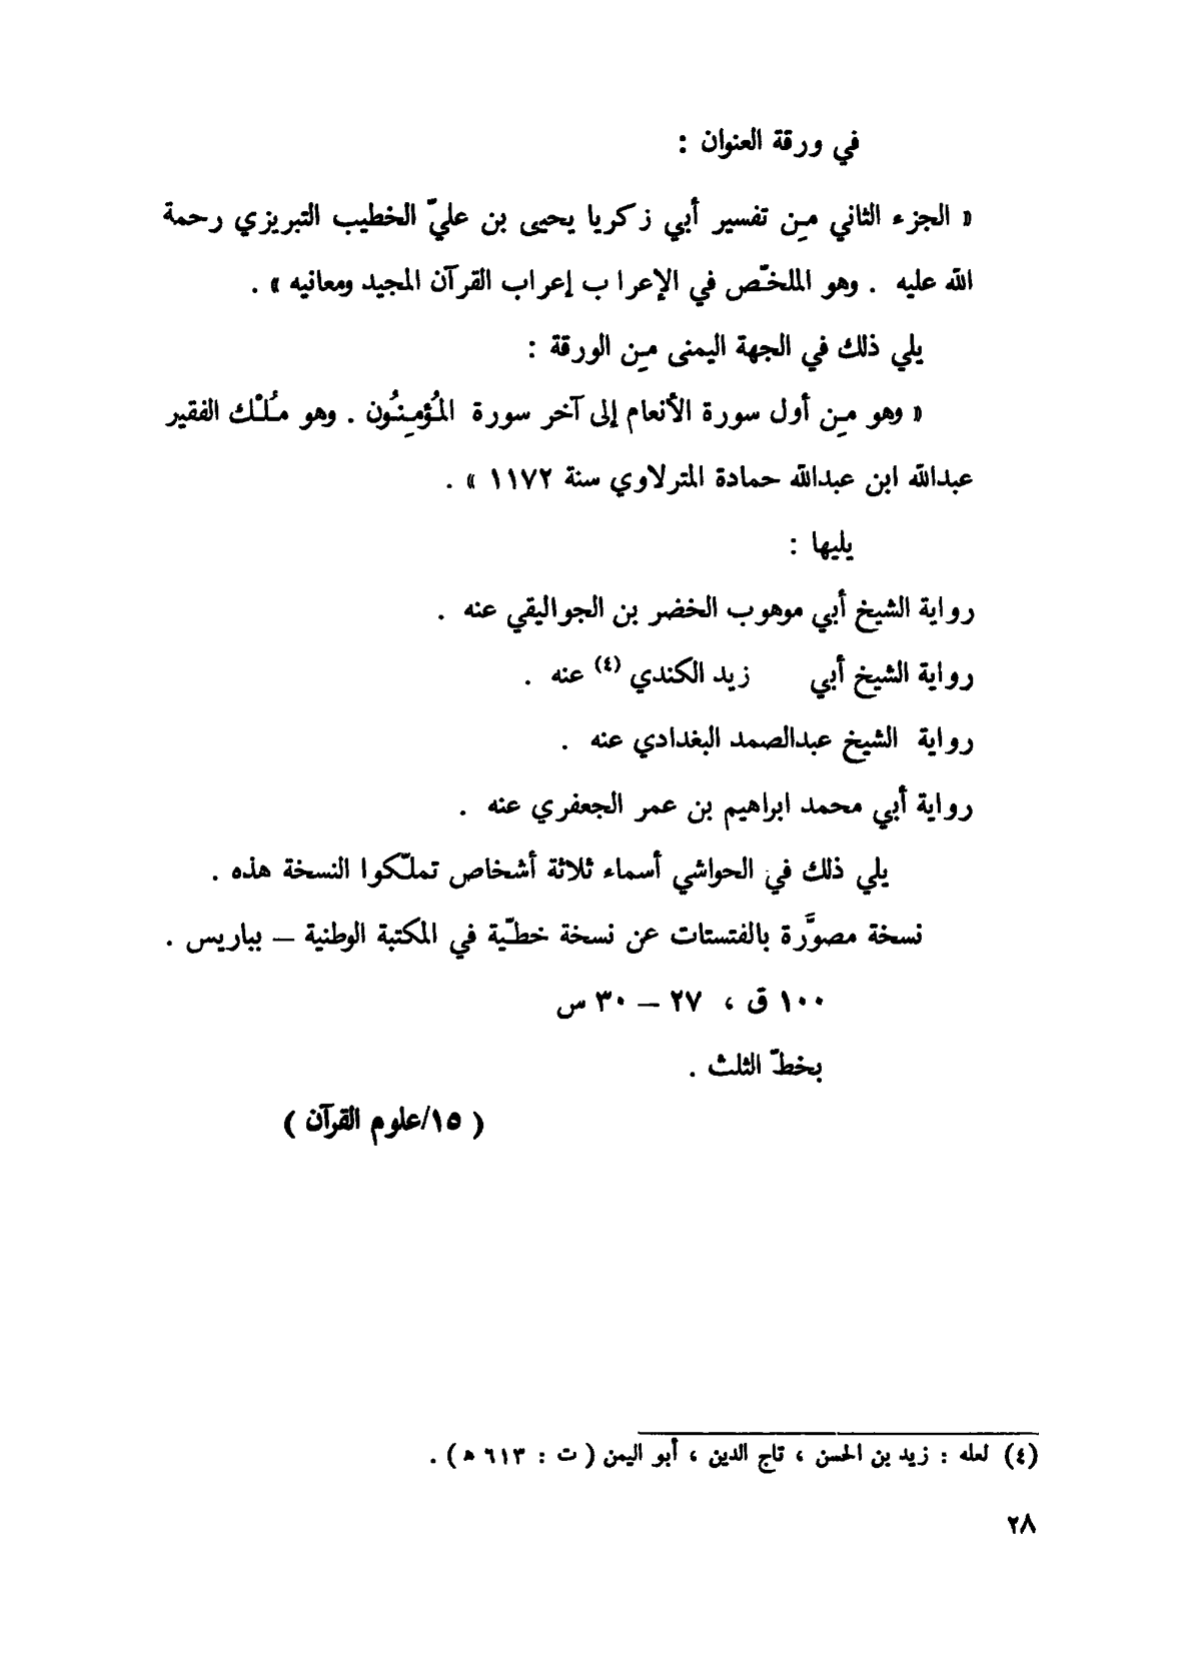 في ورقة العنوان :
« الجزء الثاني مِن تفسير أبي زكريا يحيى بن عليّ الخطيب التبريزي رحمة
الله عليه . وهو الملخّص في الإعراب إعراب القرآن المجيد ومعانيه » .
يلي ذلك في الجهة اليمنى مِن الورقة :
« وهو مِن أول سورة الأنعام إلى آخر سورة المُؤمِنُون . وهو مُلْك الفقير
عبدالله ابن عبدالله حمادة المترلاوي سنة ١١٧٢ » .
يليها :
رواية الشيخ أبي موهوب الخضر بن الجواليقي عنه .
رواية الشيخ أبي زيد الكندي (٤) عنه .
رواية الشيخ عبدالصمد البغدادي عنه .
رواية أبي محمد ابراهيم بن عمر الجعفري عنه .
يلي ذلك في الحواشي أسماء ثلاثة أشخاص تملّكوا النسخة هذه .
نسخة مصوَّرة بالفتستات عن نسخة خطّية في المكتبة الوطنية – بباريس .
١٠٠ ق ، ٢٧ – ٣٠ س
بخطّ الثلث .
( ١٥/علوم القرآن )
(٤) لعله : زيد بن الحسن ، تاج الدين ، أبو اليمن ( ت : ٦١٣ ه ) .
٢٨